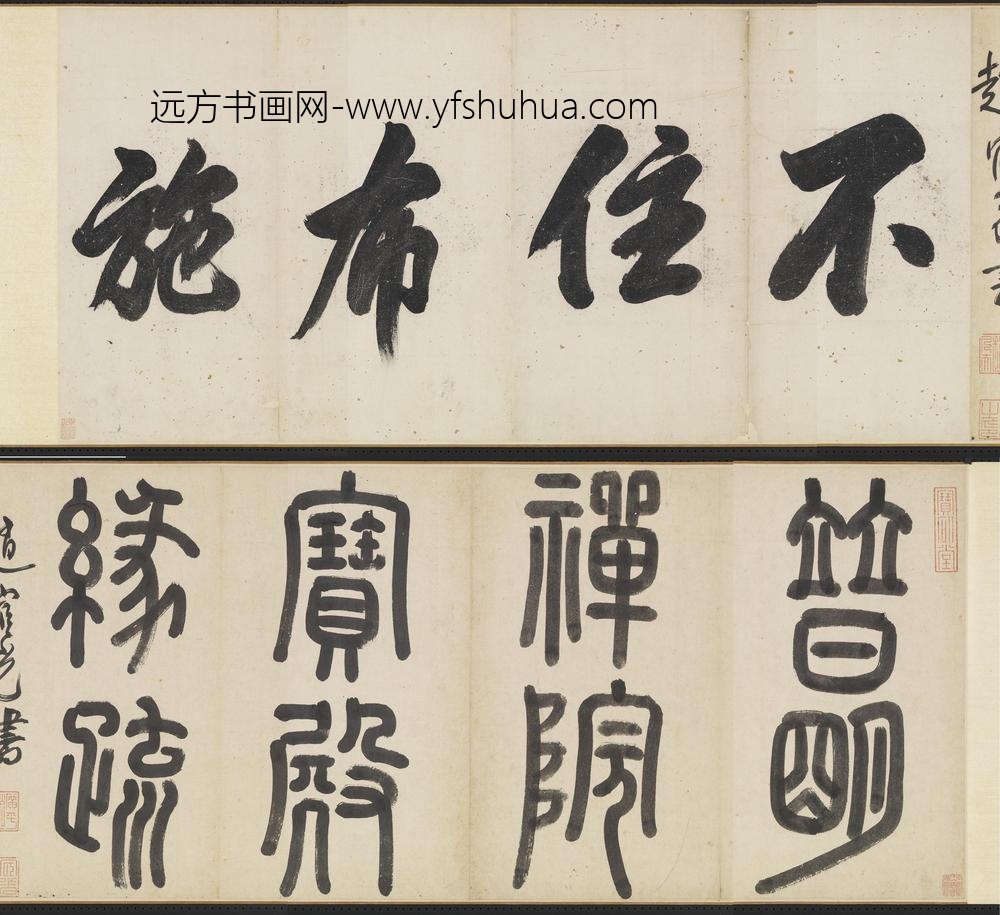 远方书画网-www.yfshuhua.com
不住布施
普明
禪院
寶殿
緣疏
趙宧光書